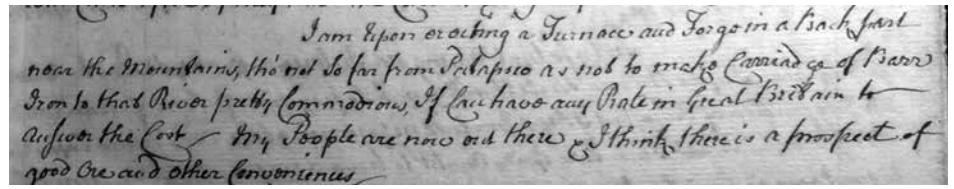 I am Upon erecting a Furnace and Forge in a Back part
near the Mountains, tho' not so far from Patapsco as not to make Carriadge of Barr
Iron to that River pretty Commodious, If Can have any Rate in Great Britain to
answer the Cost — My People are now out there & I think there is a prospect of
good Ore and other Conveniences